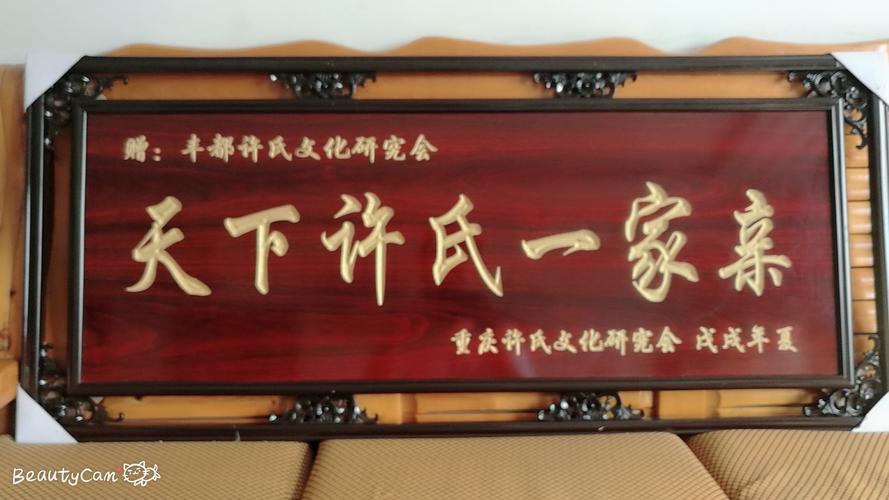 赠：丰都许氏文化研究会
天下许氏一家亲
重庆许氏文化研究会 戊戌年夏
BeautyCam